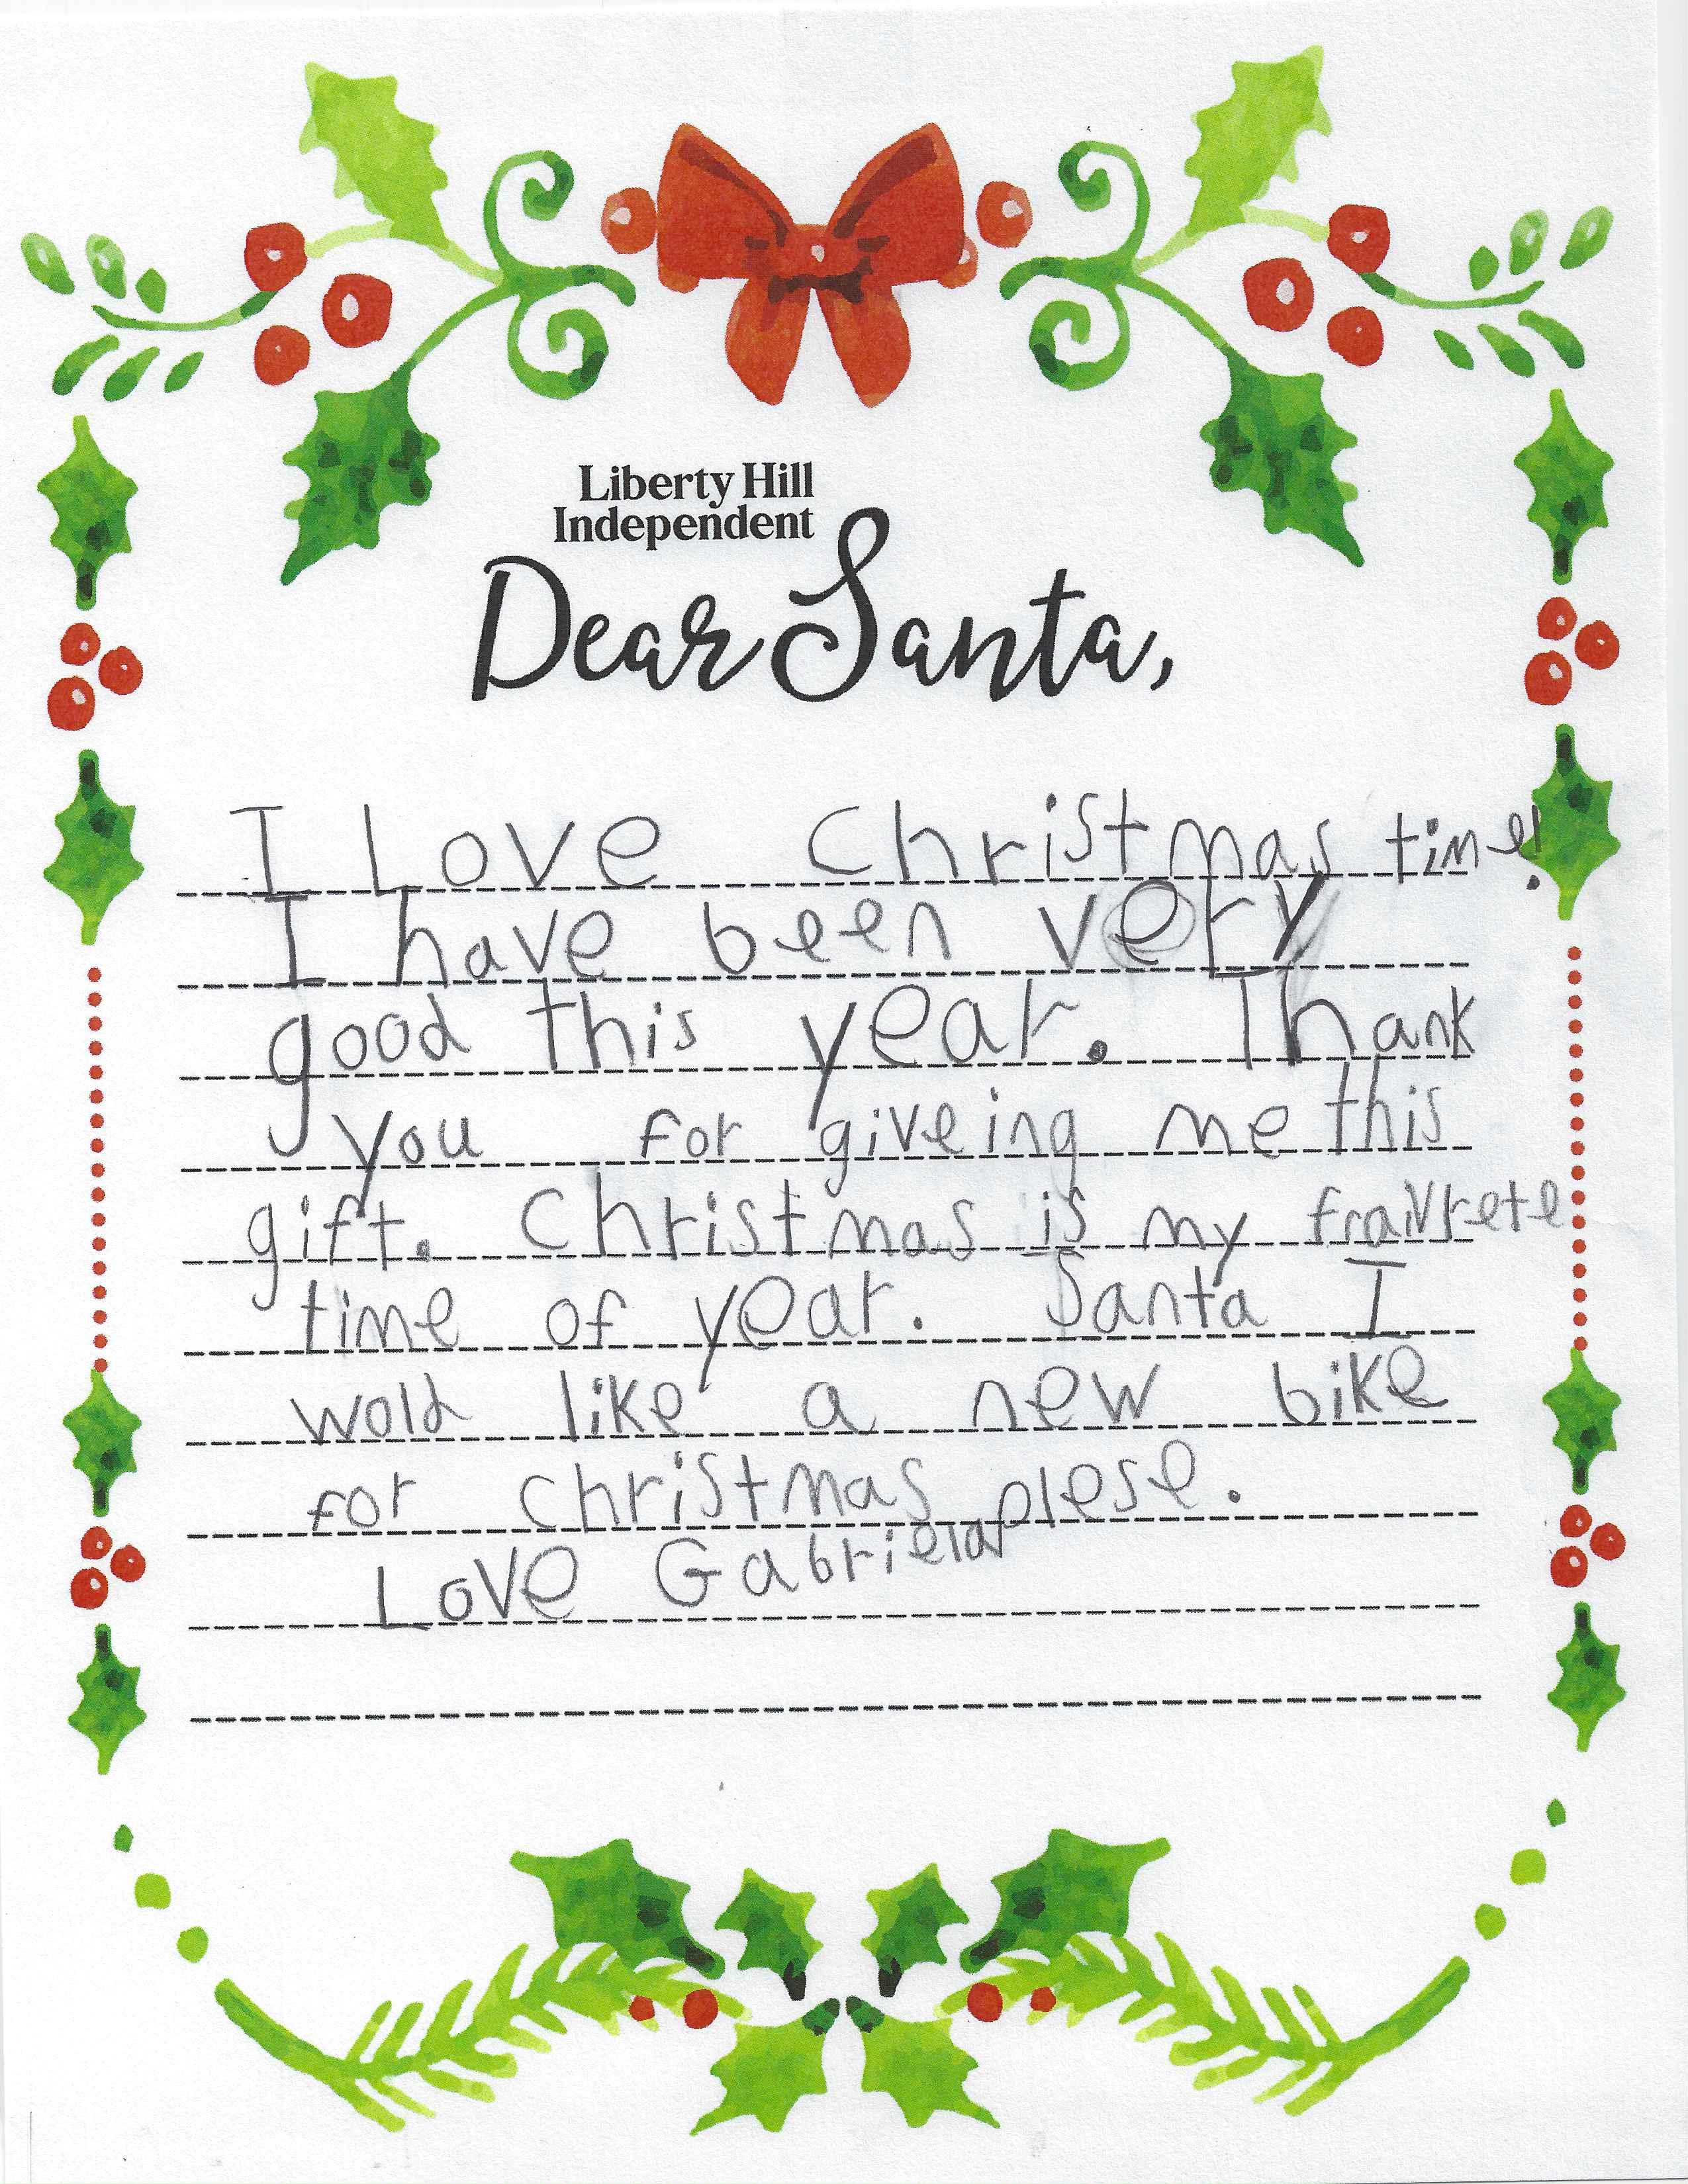 Liberty Hill
Independent
Dear Santa,
I Love Christmas time!
I have been very
good this year. Thank
you for giveing me this
gift. Christmas is my fraivrete
time of year. Santa I
wold like a new bike
for christmas plese.
Love Gabriela